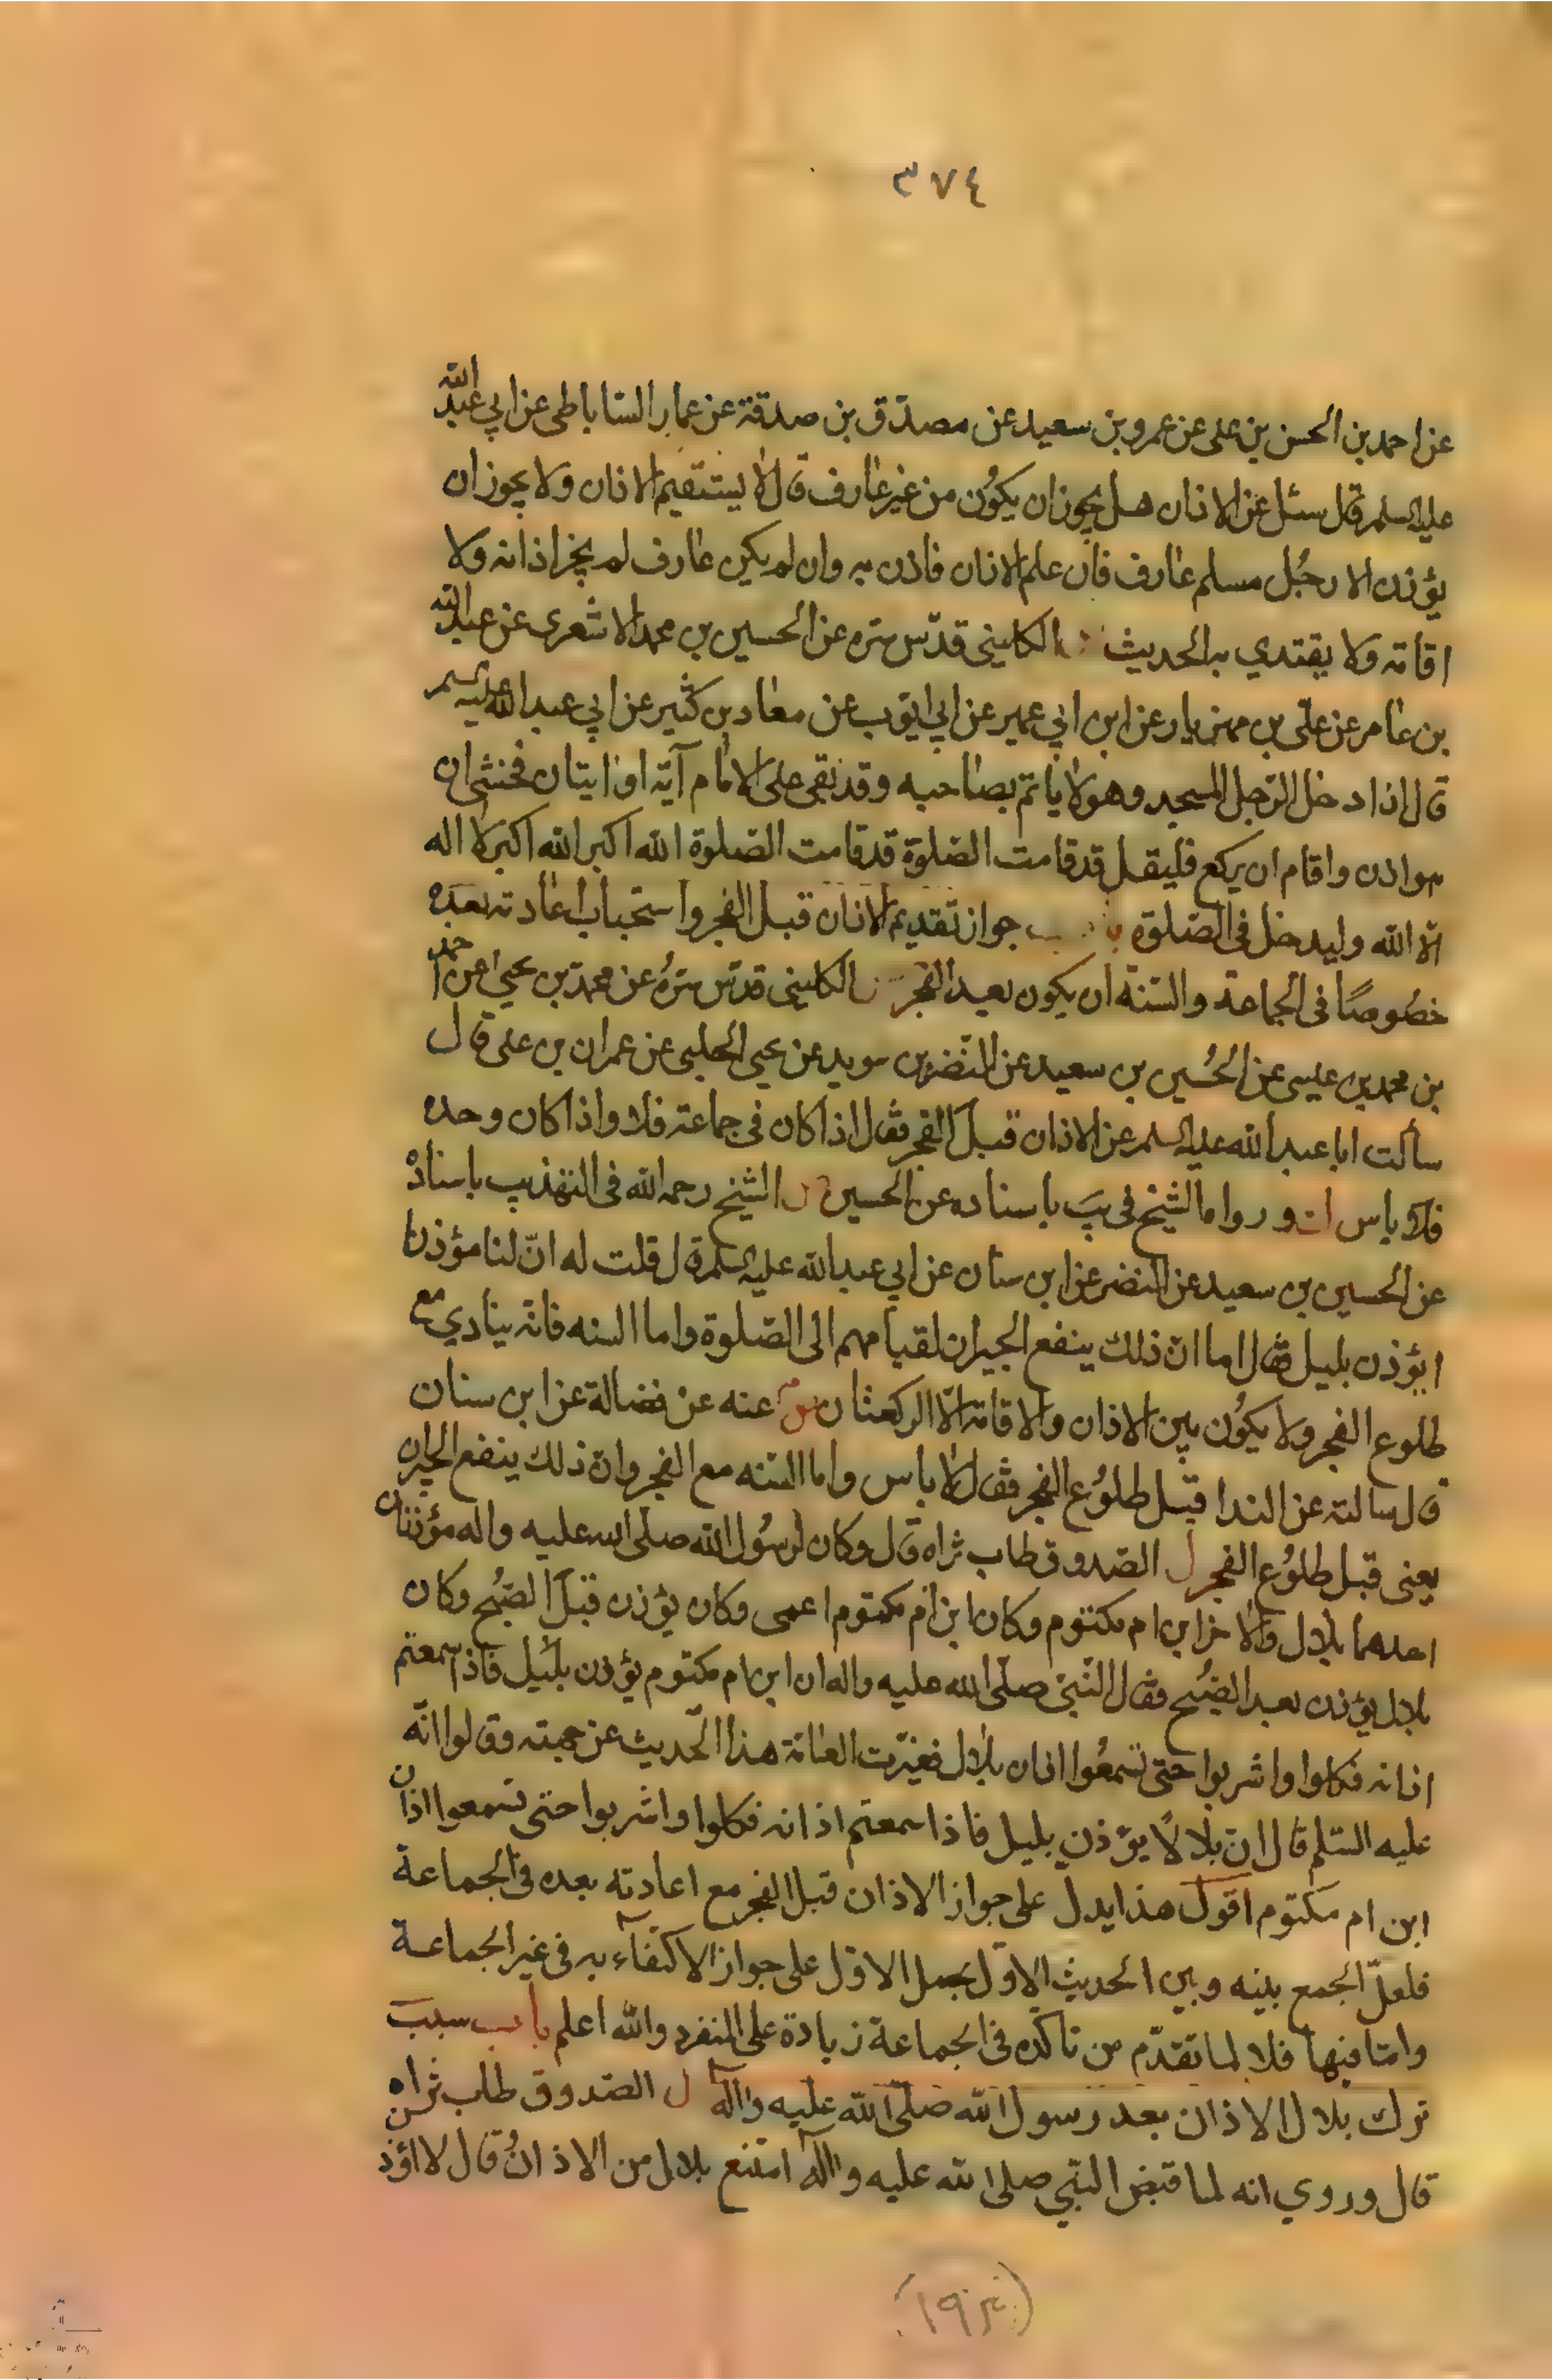 ٣٧٤
عن احمد بن الحسن بن على عن عمرو بن سعيد عن مصدّق بن صدقة عن عمار الساباطى عن ابي عبد الله
عليه السلم قال سئل عن الاذان هل يجوز ان يكون من غير عارف قال لا يستقيم الاذان ولا يجوز ان
يؤذن الا رجُل مسلم عارف فان علم الاذان فاذن به وان لم يكن عارف لم يجز اذانه ولا
اقامته ولا يقتدي به الحديث الكلينى قدّس سره عن الحسين بن محمد الاشعرى عن عبد الله
بن عامر عن علّى بن مهزيار عن ابن ابي عمير عن ابي ايّوب عن معاذ بن كثير عن ابي عبد الله عليه السلم
قال اذا دخل الرّجل المسجد وهو لا ياتم بصاحبه وقد بقى على الامام آية او ايتان فخشى ان
هو اذن واقام ان يركع فليقل قد قامت الصّلوة قد قامت الصّلوة الله اكبر الله اكبر لا اله
الّا الله وليدخل فى الصّلوة باب جواز تقديم الاذان قبل الفجر واستحباب اعادته بعده
خصُوصًا فى الجماعة والسّنة ان يكون بعد الفجر الكلينى قدّس سرّهُ عن محمّد بن يحيى عن احمد
بن محمد بن عيسى عن الحُسين بن سعيد عن النّضر بن سويد عن يحيى الحلبى عن عمران بن على قال
سألت ابا عبد الله عليه السلم عن الاذان قبل الفجر فقال اذا كان فى جماعة فلا واذا كان وحده
فلا باس ورواه الشيخ فى يب باسناده عن الحسين الشيخ رحمه الله فى التهذيب باسناده
عن الحسين بن سعيد عن النضر عن ابن سنان عن ابي عبد الله عليه السلم قال قلت له انّ لنا مؤذنا
يؤذن بليل فقال اما انّ ذلك ينفع الجيران لقيامهم الى الصّلوة واما السنه فانّه ينادي مع
طلوع الفجر ولا يكُون بين الاذان والاقامة الّا الركعتان عنه عن فضالة عن ابن سنان
قال سالته عن الندا قبل طلوُع الفجر فقال لا باس واما السّنه مع الفجر وان ذلك ينفع الجيران
يعنى قبل طلوُع الفجر ل الصّدوق طاب ثراه قال وكان لرسُول الله صلّى الله عليه واله مؤذنان
احدهما بلال والاخر ابن ام مكتوم وكان ابن ام مكتوم اعمى وكان يؤذن قبل الصّبُح وكان
بلال يؤذن بعد الصّبُح فقال النّبىّ صلّى الله عليه واله ان ابن ام مكتوم يؤذن بليل فاذا سمعتم
اذانه فكلوا واشربوا حتى تسمعُوا اذان بلال فغيّرت العامّة هذا الحّديث عن جهته وقالوا انّه
عليه السّلم قال انّ بلالًا يؤذن بليل فاذا سمعتم اذانه فكلوا واشربوا حتى تسمعوا اذان
ابن ام مكتوم اقول هذا يدل على جواز الاذان قبل الفجر مع اعادته بعده فى الجماعة
فلعلّ الجمع بينه وبين الحديث الاوّل بحمل الاوّل على جواز الاكتفاء به فى غير الجماعة
وامّا فيها فلا لما تقدّم من تاكّده فى الجماعة زيادة على المنفرد والله اعلم باب سبب
ترك بلال الاذان بعد رسول الله صلّى الله عليه وآله ل الصّدوق طاب ثراه
قال وروي انه لما قبض النبّى صلى الله عليه وآله امتنع بلال من الاذان وُقال لا اؤذن
(١٩٤)